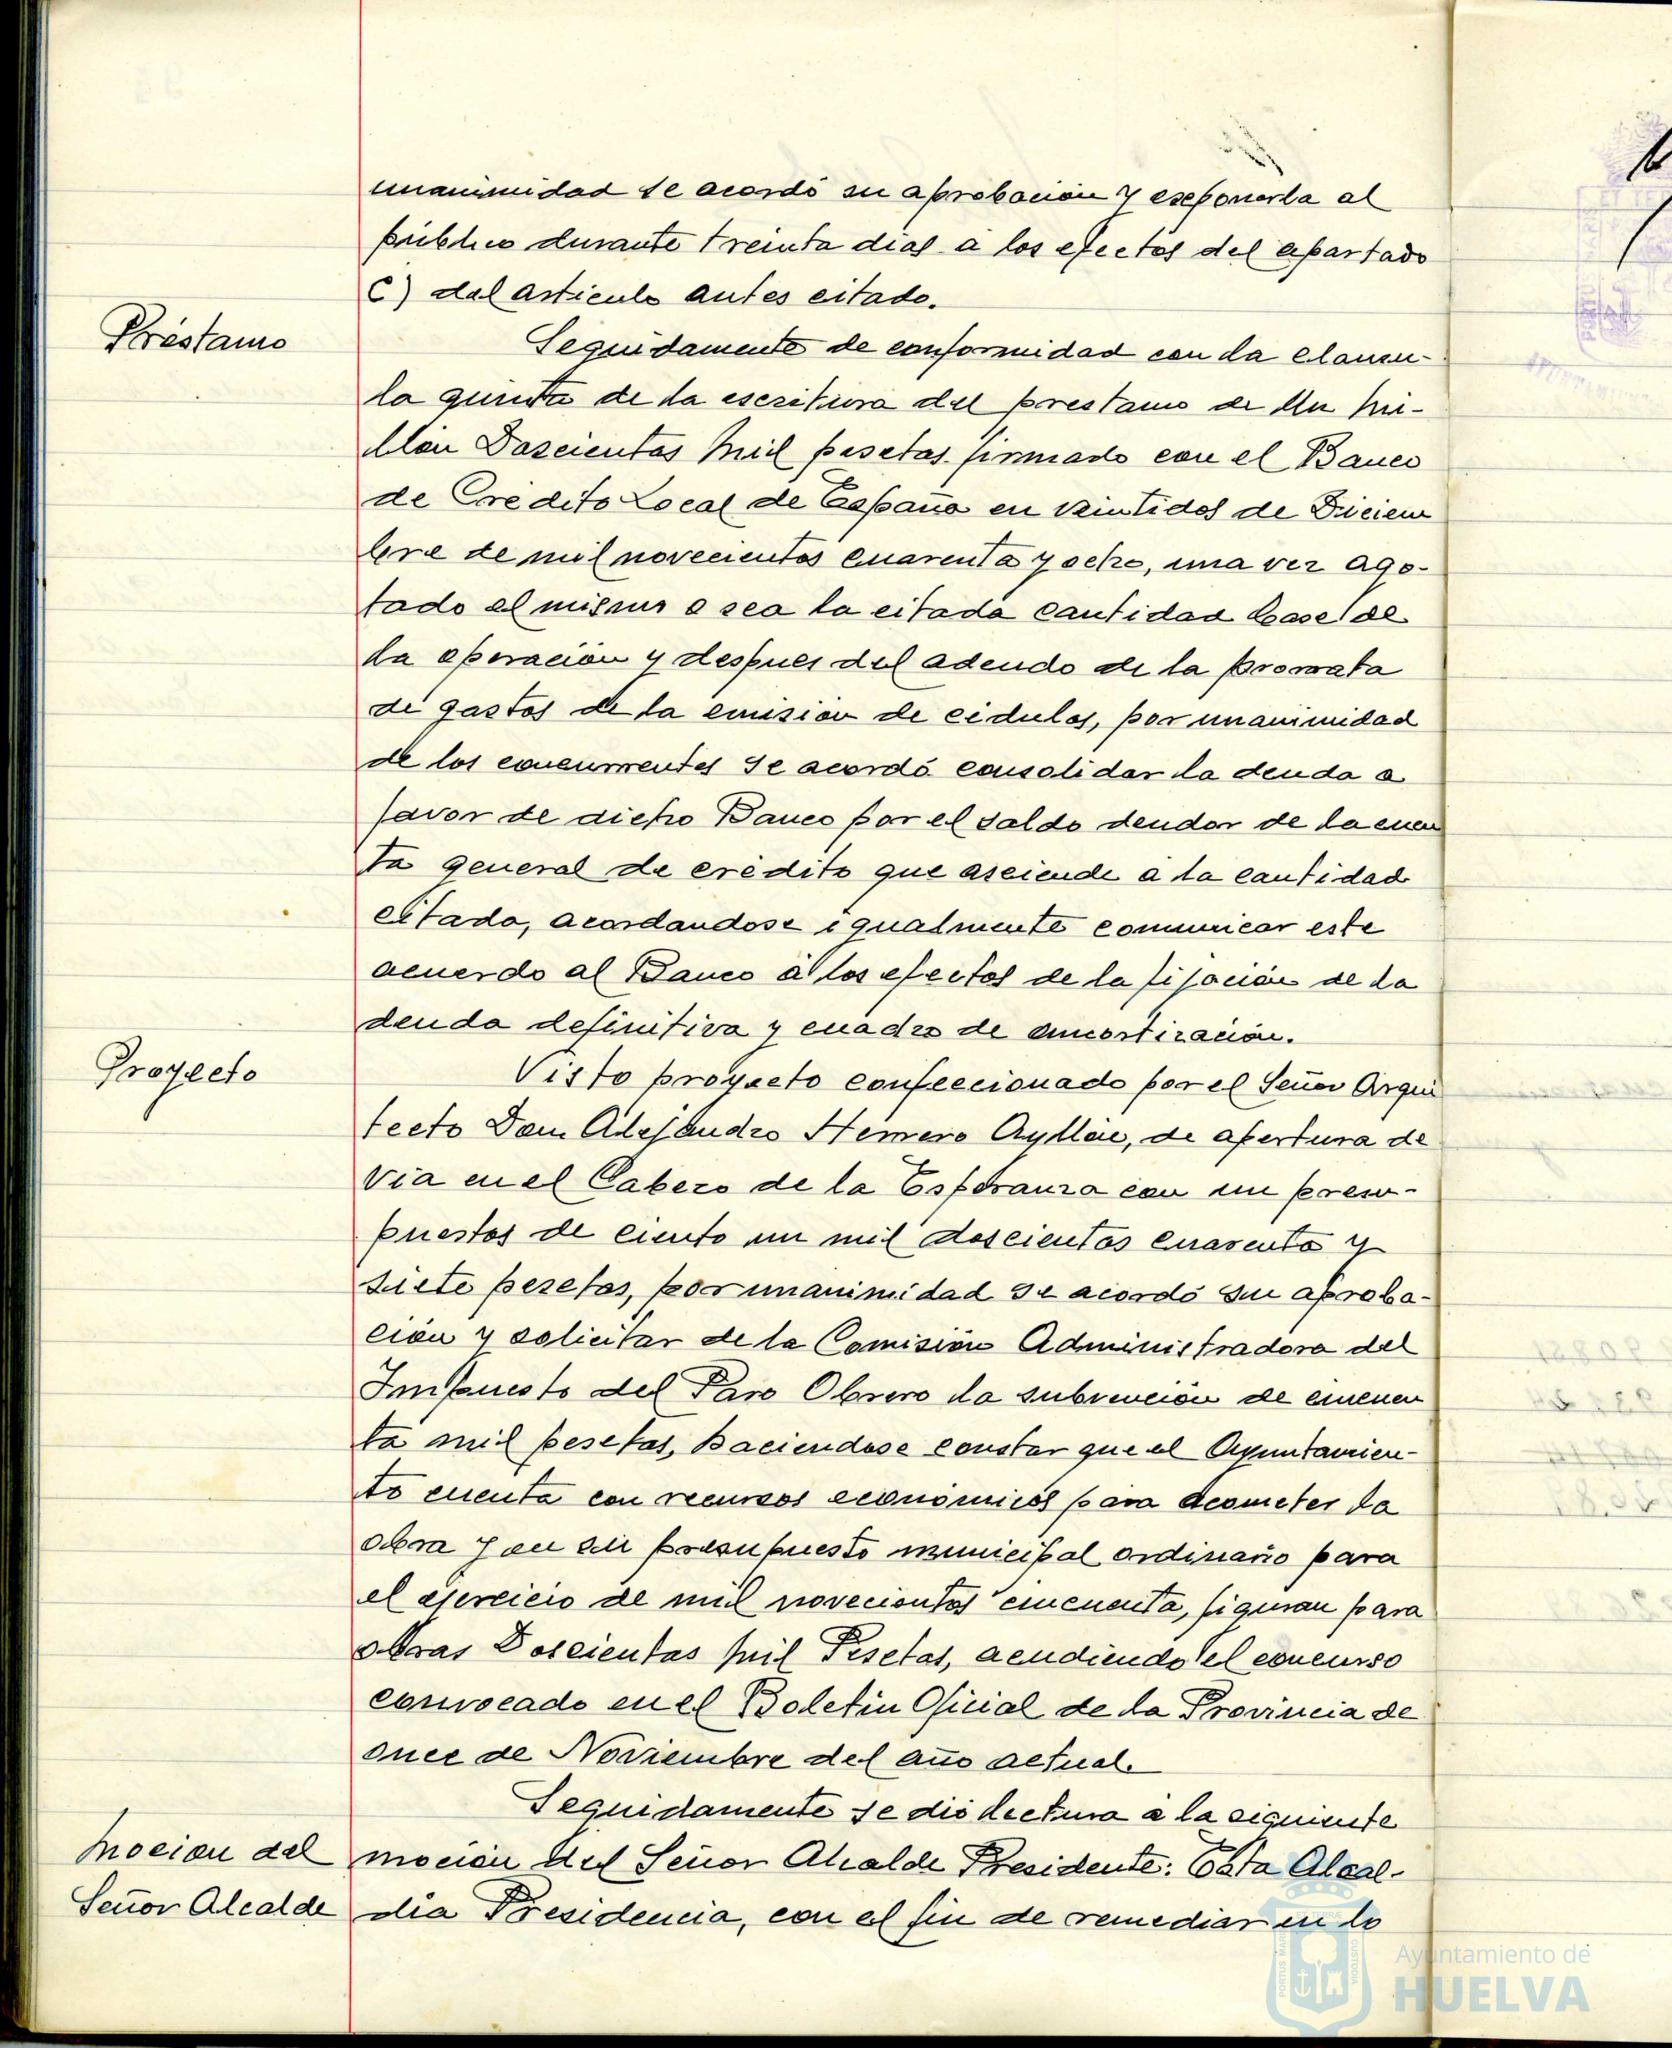 unanimidad se acordó su aprobación y exponerla al
público durante treinta dias a los efectos del apartado
C) del articulo antes citado.
Préstamo
Seguidamente de conformidad con la clausu-
la quinta de la escritura del prestamo de Un Mi-
llón Doscientas Mil pesetas firmado con el Banco
de Crédito Local de España en veintidos de Diciem
bre de mil novecientos cuarenta y ocho, una vez ago-
tado el mismo o sea la citada cantidad base de
la operación y despues del adeudo de la prorrata
de gastos de la emision de cédulas, por unanimidad
de los concurrentes se acordó consolidar la deuda a
favor de dicho Banco por el saldo deudor de la cuen
ta general de crédito que asciende a la cantidad
citada, acordandose igualmente comunicar este
acuerdo al Banco a los efectos de la fijación de la
deuda definitiva y cuadro de amortización.
Proyecto
Visto proyecto confeccionado por el Señor Arqui
tecto Don Alejandro Herrero Ayllón, de apertura de
Via en el Cabezo de la Esperanza con un presu-
puestos de ciento un mil doscientas cuarenta y
siete pesetas, por unanimidad se acordó su aproba-
ción y solicitar de la Comisión Administradora del
Impuesto del Paro Obrero la subvención de cincuen
ta mil pesetas, haciendose constar que el Ayuntamien-
to cuenta con recursos económicos para acometer la
obra y en su presupuesto municipal ordinario para
el ejercicio de mil novecientos cincuenta, figuran para
obras Doscientas mil Pesetas, acudiendo el concurso
convocado en el Boletin Oficial de la Provincia de
once de Noviembre del año actual.
Seguidamente se dió lectura a la siguiente
Mocion del
Señor Alcalde
moción del Señor Alcalde Presidente: Esta Alcal-
dia Presidencia, con el fin de remediar en lo
Ayuntamiento de
HUELVA